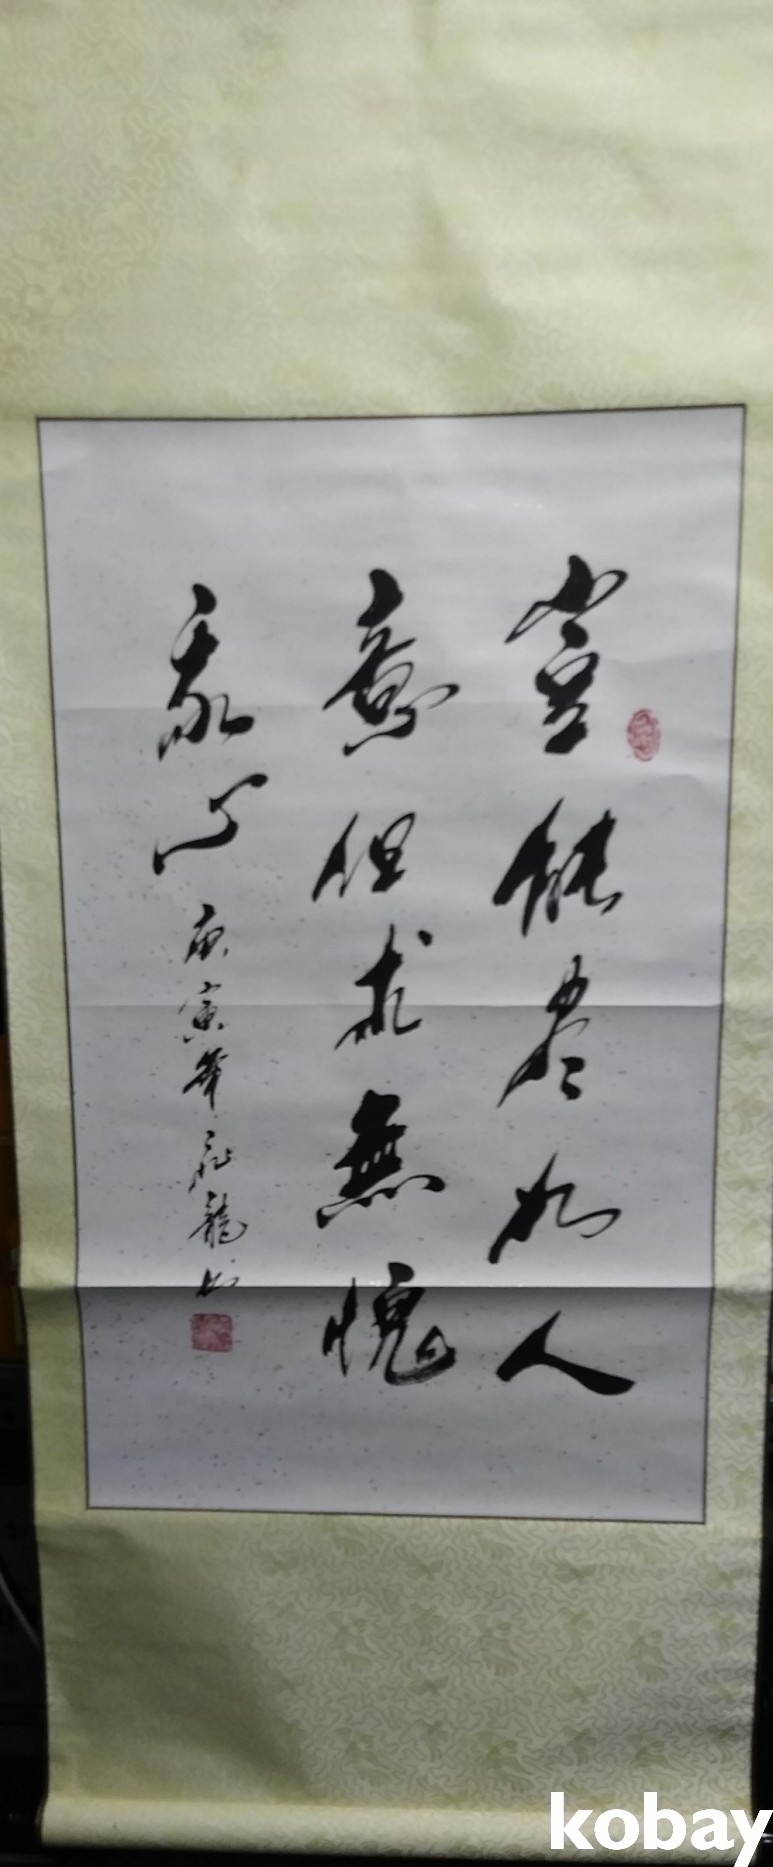 豈能盡如人
意但求無愧
我心
庚寅年
龍書
kobay